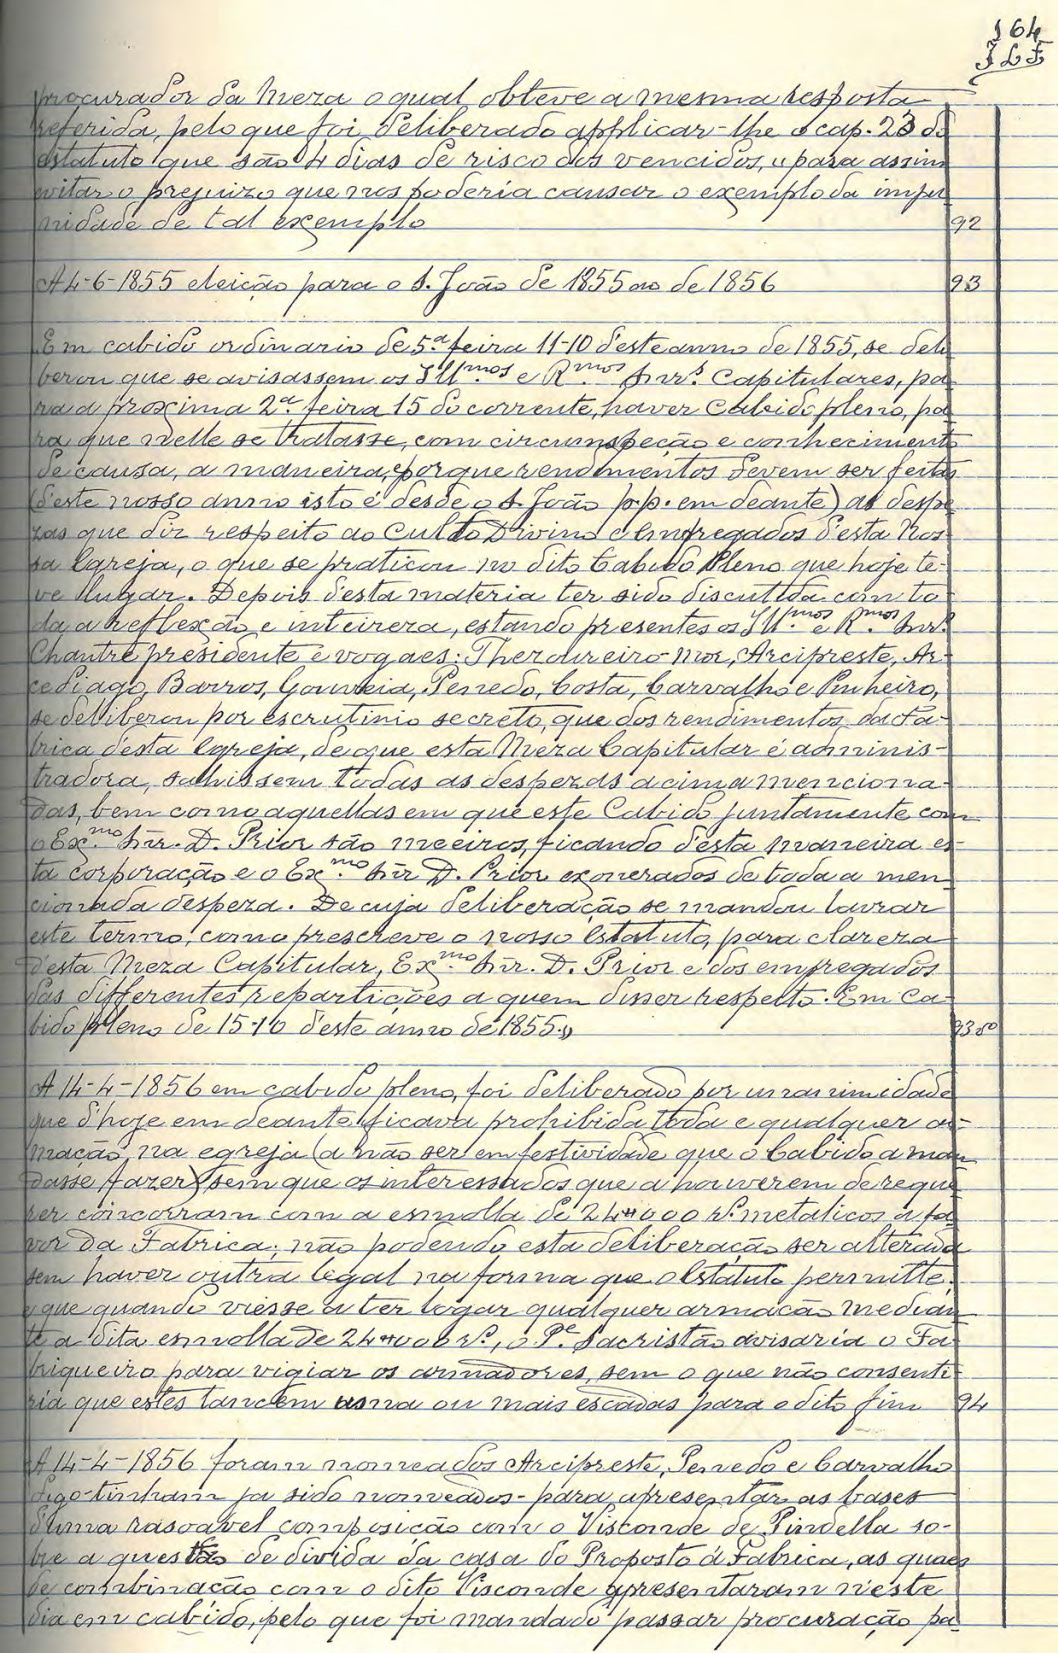 164
J L F
procurador da Meza o qual obteve a mesma resposta
referida, pelo que foi deliberado applicar-lhe o cap. 23 do
estatuto que são 4 dias de risco dos vencidos, "para assim
evitar o prejuizo que nos poderia causar o exemplo da impu
nidade de tal exemplo 92
A 4-6-1855 eleição para o S. João de 1855 ao de 1856 93
Em cabido ordinario de 5.ª feira 11-10 d'este anno de 1855, se deli
berou que se avisassem os Ill.mos e R.mos Snr.s Capitulares, pa
ra a proxima 2.ª feira 15 do corrente, haver Cabido pleno, pa
ra que nelle se tratasse, com circumspeção e conhecimento
de causa, a maneira, e porque rendimentos devem ser feitas
(d'este nosso anno isto é desde o S. João p.p. em deante) as despe
zas que diz respeito ao Culto Divino e empregados d'esta Nos
sa Egreja, o que se praticou no dito Cabido Pleno que hoje te-
ve lugar. Depois d'esta materia ter sido discutida com to
da a reflexão e inteireza, estando presentes os Ill.mos e R.mos Snr.s
Chantre presidente e vogaes: Thezoureiro-Mor, Arcipreste, Ar-
cediago, Barros, Gouveia, Penedo, Costa, Carvalho e Pinheiro,
se deliberou por escrutinio secreto, que dos rendimentos da Fa-
brica desta Egreja, de que esta Meza Capitular é adminis-
tradora, sahissem todas as despezas acima menciona-
das, bem como aquellas em que este Cabido juntamente com
o Ex.mo Snr. D. Prior são meeiros, ficando d'esta maneira es-
ta corporação e o Ex.mo Snr D. Prior exonerados de toda a men-
cionada despeza. De cuja deliberação se mandou lavrar
este termo, como prescreve o nosso Estatuto, para clareza
d'esta Meza Capitular, Ex.mo Snr. D. Prior e dos empregados
das differentes repartições a quem disser respeito. Em Ca-
bido pleno de 15-10 d'este anno de 1855.» 93
A 14-4-1856 em cabido pleno, foi deliberado por unanimidade
que d'hoje em deante ficava prohibida toda e qualquer ar-
mação na egreja (a não ser em festividade que o Cabido a man
dasse fazer) sem que os interessados que a houverem de reque
rer concorram com a esmolla de 24#000 r.s metalicos a fa-
vor da Fabrica, não podendo esta deliberação ser alterada
sem haver outra legal na forma que o Estatuto permitte,
e que quando viesse a ter logar qualquer armação median
te a dita esmolla de 24#000 r.s, o P.e Sacristão avisaria o Fa-
briqueiro para vigiar os armadores, sem o que não consenti-
ria que estes lancem uma ou mais escadas para o dito fim 94
A 14-4-1856 foram nomeados Arcipreste, Penedo e Carvalho
digo-tinham ja sido nomeados-para apresentar as bases
d'uma rasoavel composição com o Visconde de Pindella so-
bre a questão de divida da casa do Proposto á Fabrica, as quaes
de combinação com o dito Visconde apresentaram n'este
dia em cabido, pelo que foi mandado passar procuração pa-